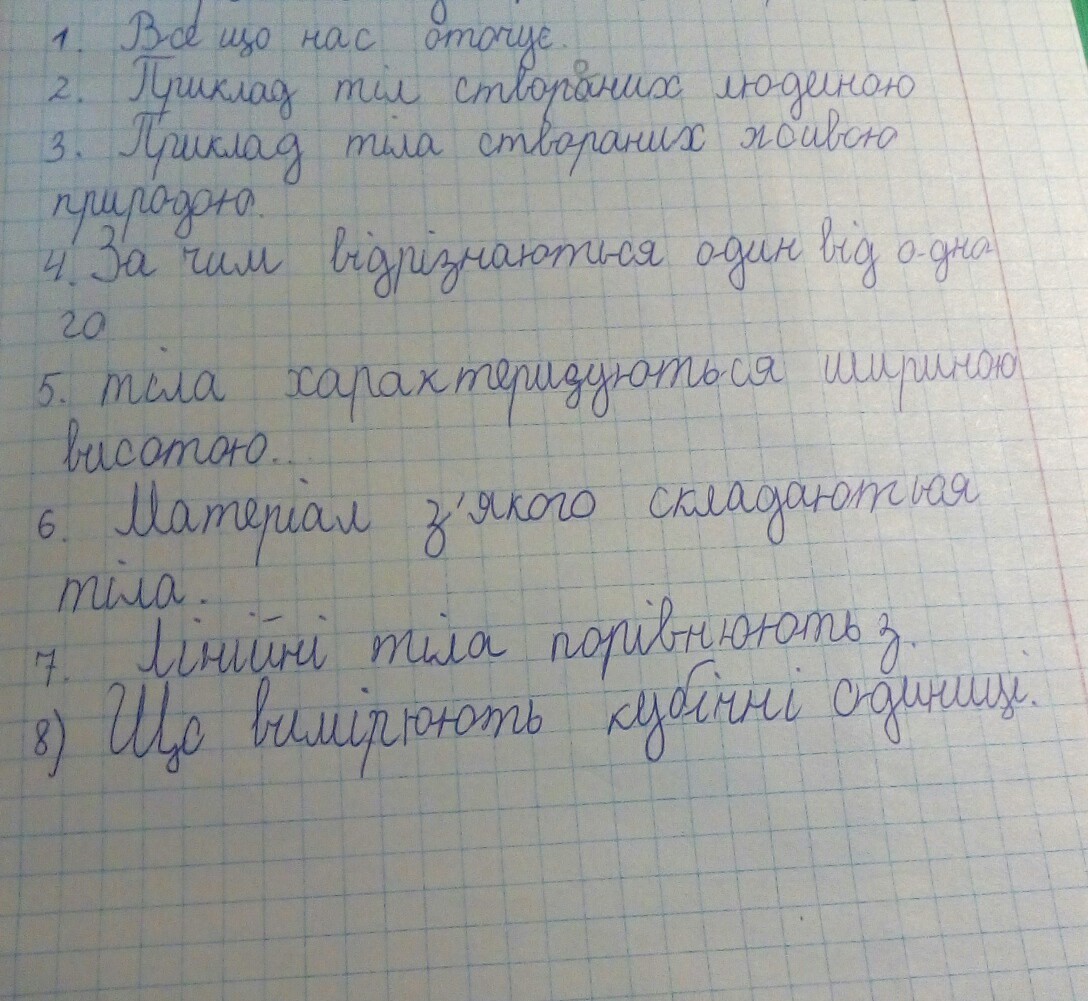 1. Все що нас оточує.
2. Приклад тіл створаних людиною
3. Приклад тіла створаних живою
природою.
4. За чим відрізнаються один від одна
го
5. тіла характеризуються шириною
висотою...
6. Матеріал з'якого складаються
тіла.
7. Лінійні тіла порівнюють з.
8) Що вимірюють кубічні одиниці.